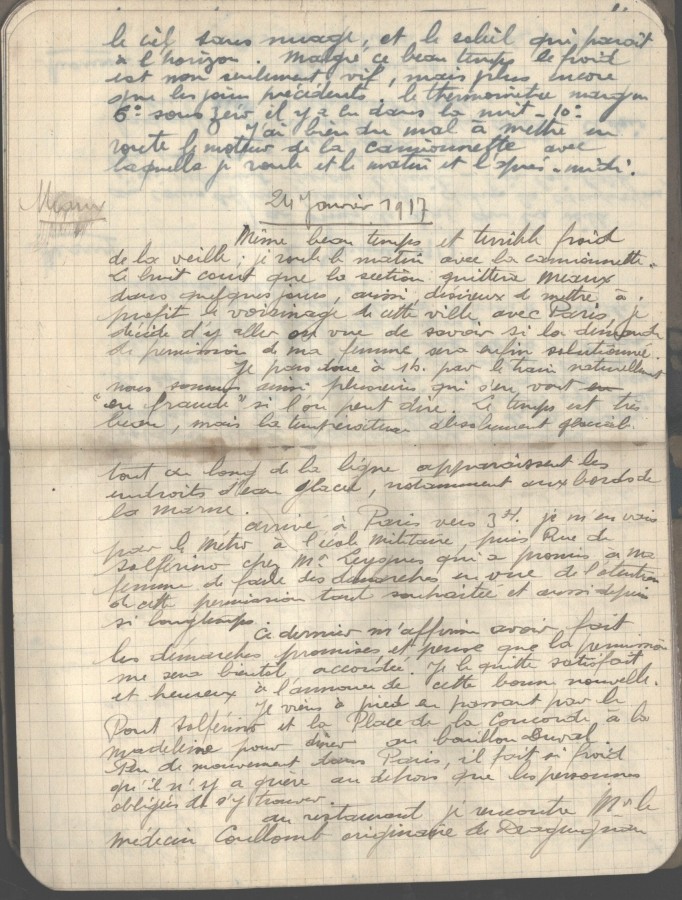 le ciel sans nuage, et le soleil qui paraît
à l'horizon. Malgré ce beau temps le froid
est non seulement vif, mais plus encore
que les jours précédents. le thermomètre marque
6° sous zéro il y a eu dans la nuit - 10°
J'ai bien du mal à mettre en
route le moteur de la camionnette avec
laquelle je roule et le matin et l'après-midi.
Meaux
24 Janvier 1917
Même beau temps et terrible froid
de la veille; je roule le matin avec la camionnette.
Le bruit court que la section quittera Meaux
dans quelques jours, aussi, désireux de mettre à
profit le voisinage de cette ville avec Paris, je
décide d'y aller en vue de savoir si la demande
de permission de ma femme sera enfin solutionnée.
Je pars donc à 1h. par le train naturellement
nous sommes ainsi plusieurs qui s'en vont en
"en fraude" si l'on peut dire. Le temps est très
beau, mais la température absolument glacial.
tout au long de la ligne apparaissent les
endroits d'eau glacée, notamment aux bords de
la Marne.
arrivé à Paris vers 3H. je m'en vais
par le Métro à l'école Militaire, puis Rue de
Solférino chez Mr Leygues qui a promis à ma
femme de faire des démarches en vue de l'obtention
de cette permission tant souhaitée et aussi depuis
si longtemps.
Ce dernier m'affirme avoir fait
les démarches promises et pense que la permission
me sera bientôt accordée. Je le quitte satisfait
et heureux à l'annonce de cette bonne nouvelle.
Je viens à pied en passant par le
Pont Solférino et la Place de la Concorde à la
Madeleine pour dîner au bouillon Duval.
Peu de mouvement dans Paris, il fait si froid
qu'il n'y a guère au dehors que les personnes
obligées de s'y trouver.
au restaurant je rencontre Mr le
médecin Coullomb originaire de Draguignan